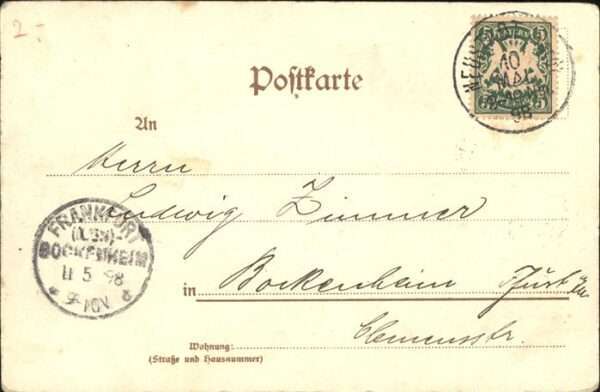 2.-
5 BAYERN 5
NEU
10
MAI
98
5 5
Postkarte
An
Herrn
Ludwig Zimmer
FRANKFURT
BOCKENHEIM
11 5 98
in Bockenheim
Clemensstr.
Wohnung:
(Straße und Hausnummer)